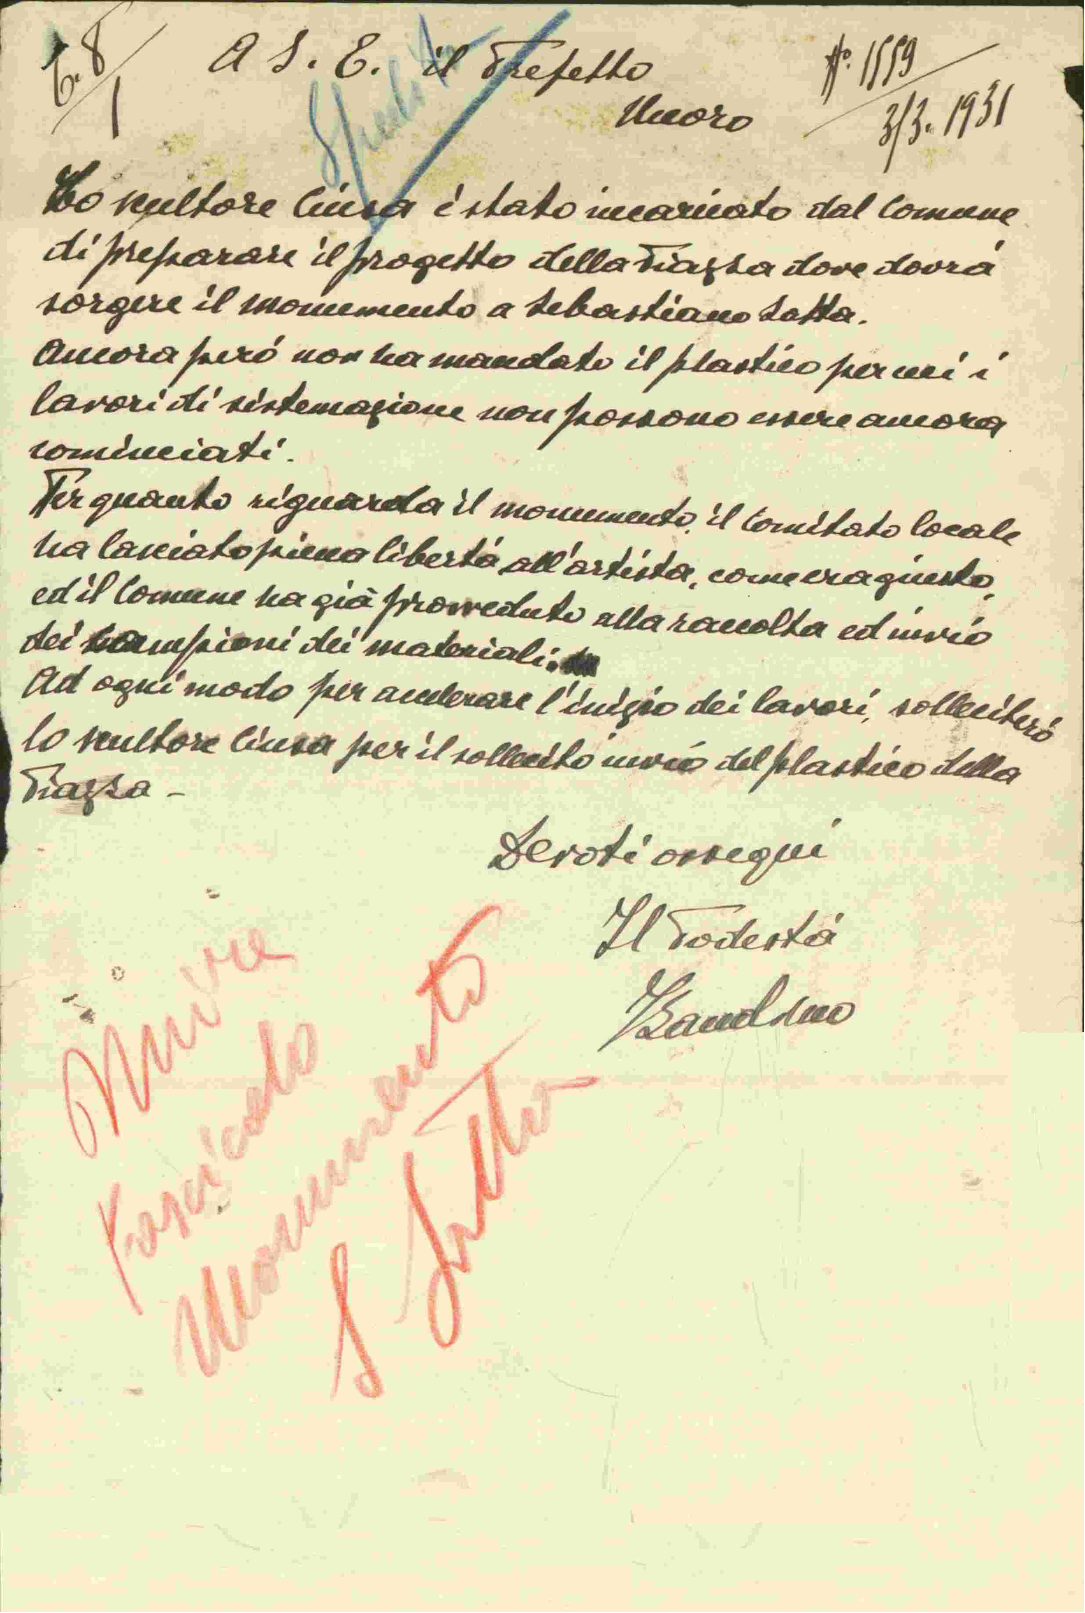 6.8/1
A S. E. il Prefetto
Nuoro
N°. 1559
3/3. 1931
Spedita
Lo scultore Ciusa è stato incaricato dal Comune
di preparare il progetto della Piazza dove dovrà
sorgere il monumento a Sebastiano Satta.
Ancora però non ha mandato il plastico per cui i
lavori di sistemazione non possono essere ancora
cominciati.
Per quanto riguarda il monumento, il Comitato locale
ha lasciato piena libertà all'artista, come era giusto,
ed il Comune ha già provveduto alla raccolta ed invio
dei campioni dei materiali.
Ad ogni modo per accelerare l'inizio dei lavori, solleciterò
lo scultore Ciusa per il sollecito invio del plastico della
Piazza -
Devoti ossequi
Il Podestà
Unire
Fascicolo
Monumento
S Satta